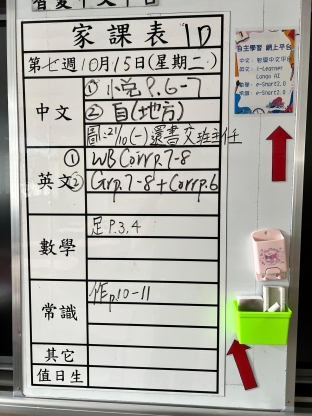 智愛中文平台
家課表 1D
第七週10月15日(星期二)
中文
① 小悅 P.6-7
② 自(地方)
圖:21/10(一)還書交班主任
英文
① WB Corr p.7-8
② Grp. 7-8 + Corr p.6
數學
足 P.3,4
常識
作 p.10-11
其它
值日生
自主學習 網上平台
中文:智愛中文平台
英文:i-Learner
Lango AI
數學:eSmart2.0
常識:eSmart2.0